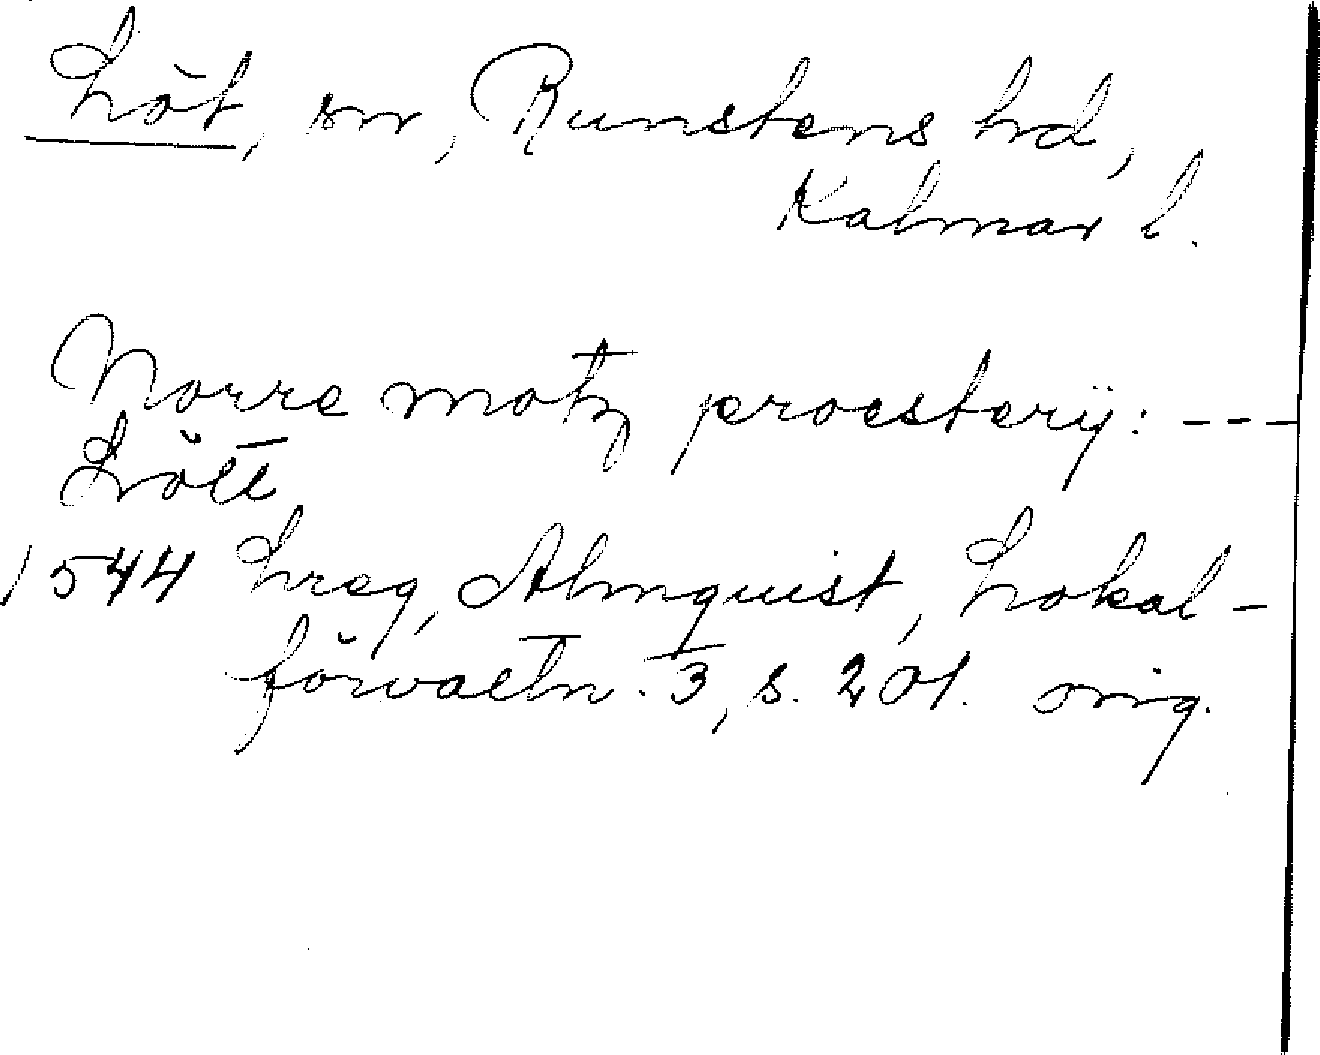 Löt, sn, Runstens hd,
Kalmar l.
Norre motz procsterij: ---
Lött
1544 Lreg, Almquist, Lokal-
förvaltn. 3, s. 201. orig.